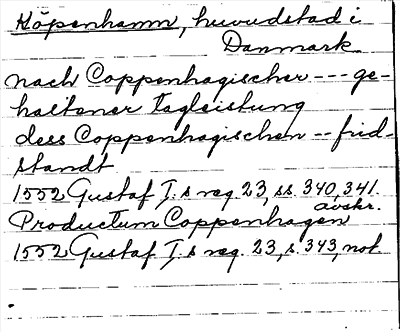 Köpenhamn, huvudstad i
Danmark
nach Coppenhagischer --- ge-
haltener tagleistung
dess Coppenhagischen -- frid-
standt
1552 Gustaf I:s reg 23, ss. 340, 341.
avskr.
Productum Coppenhagen
1552 Gustaf I:s reg. 23, s. 343, not.